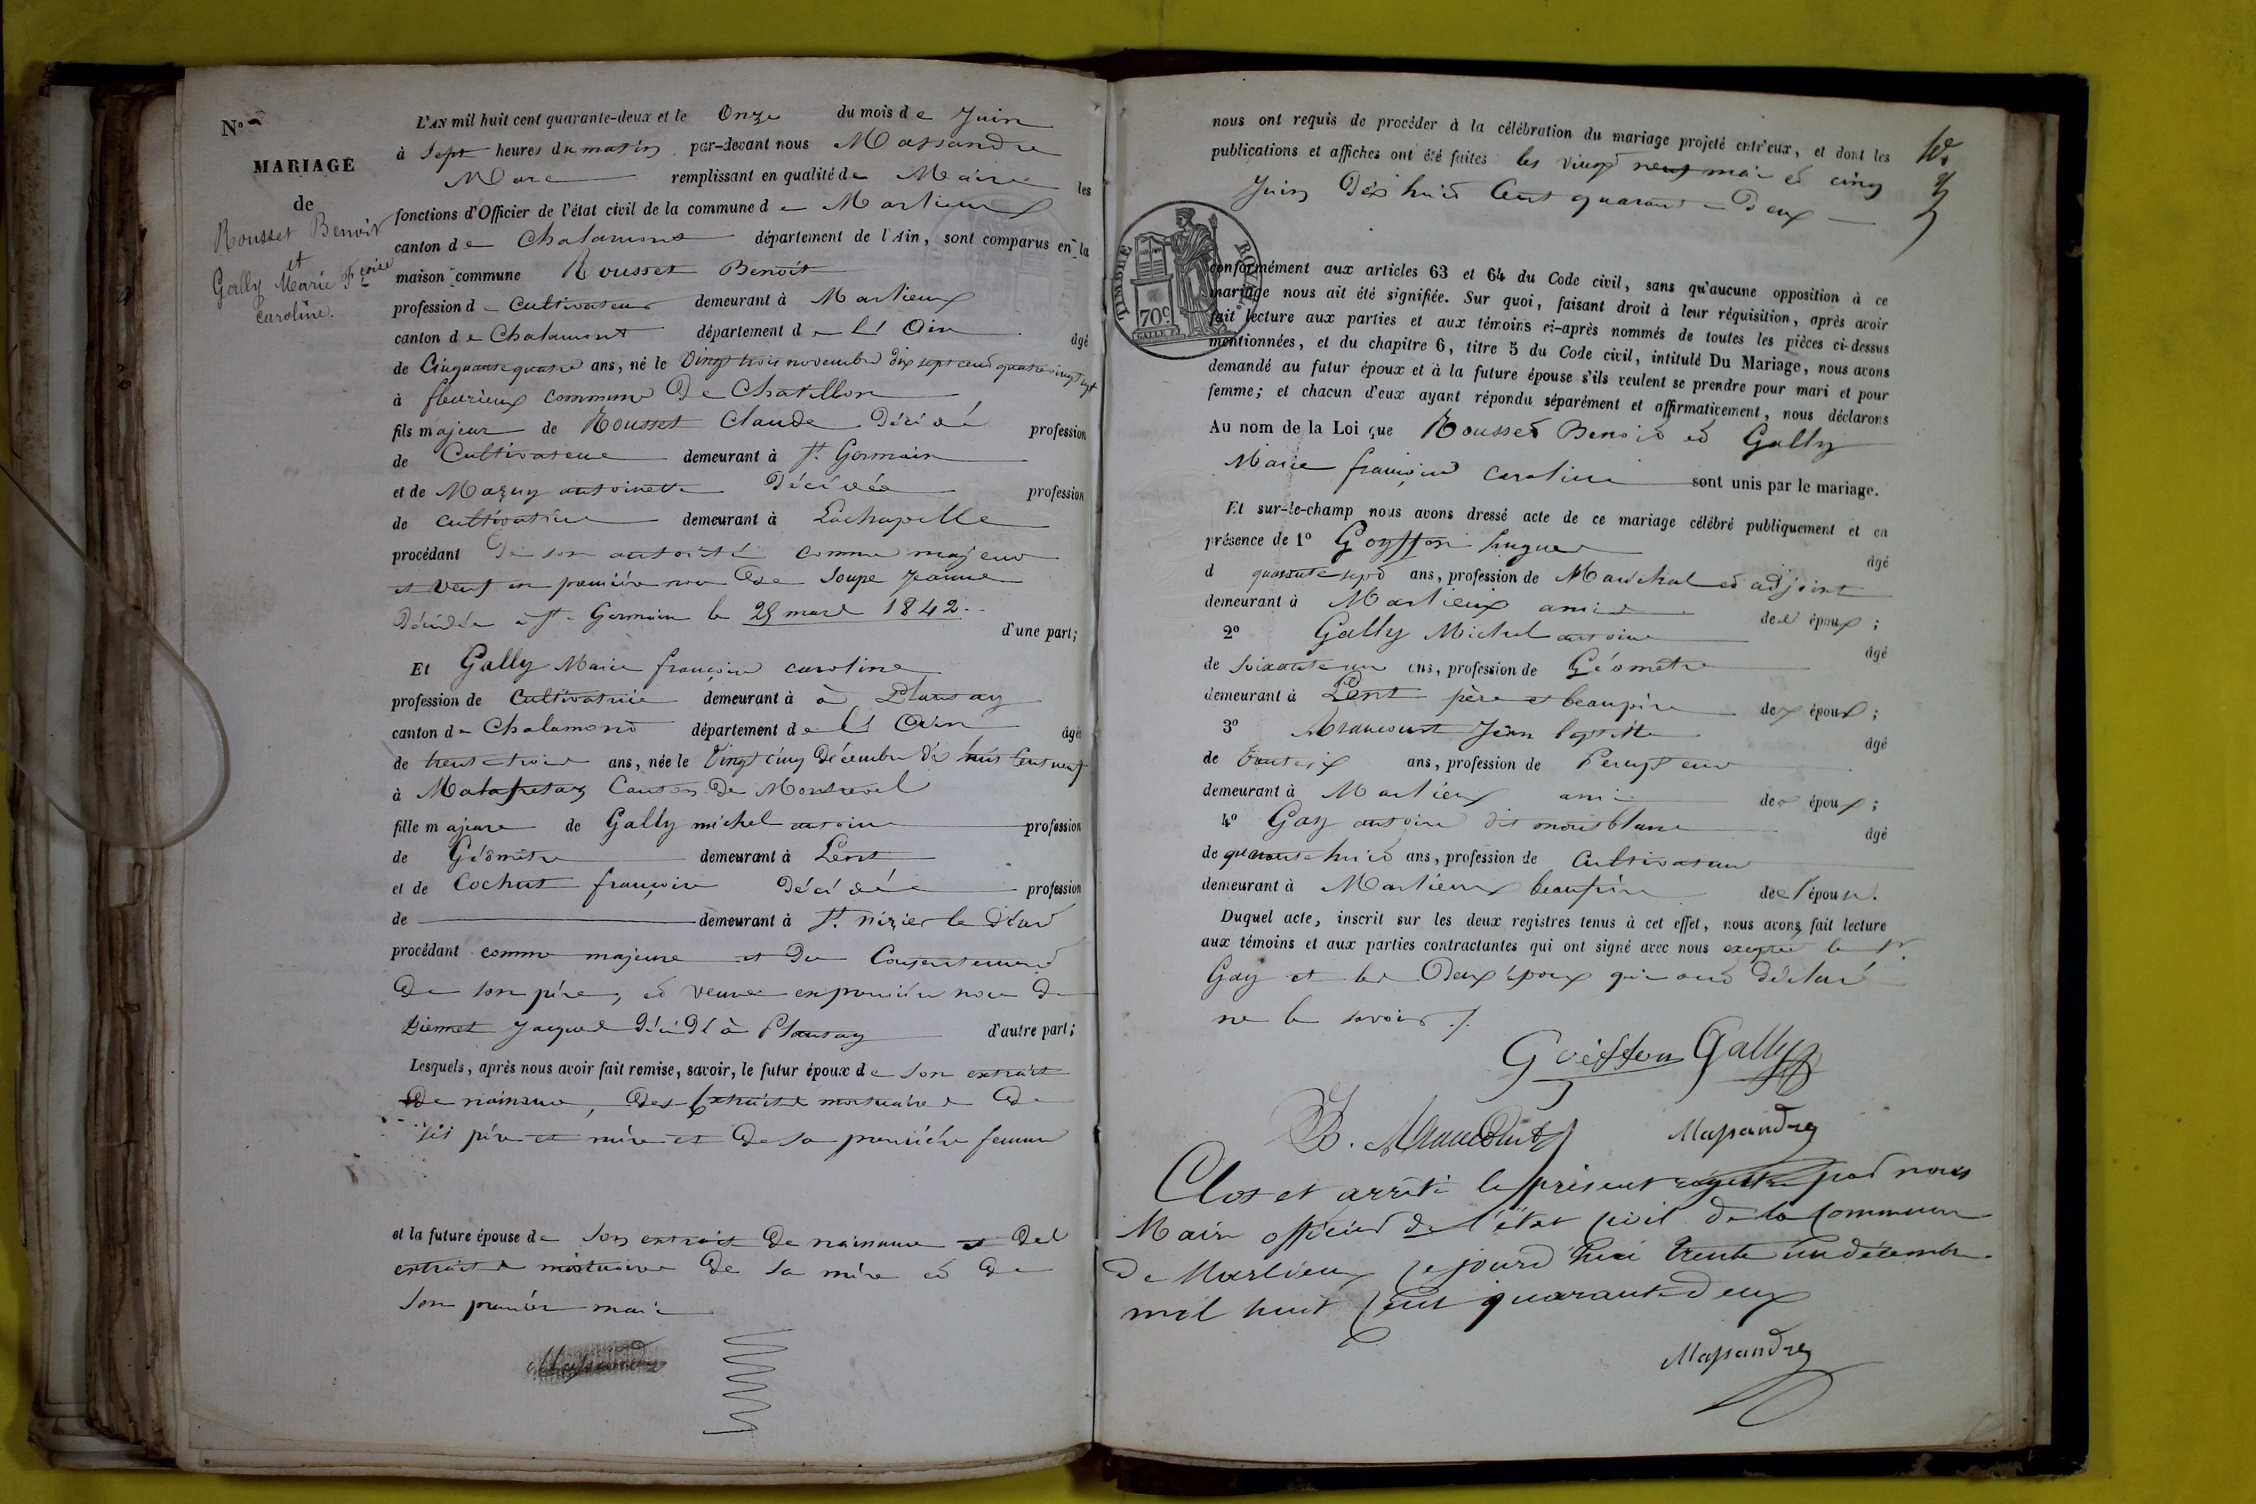 N°
MARIAGE
de
Rousset Benoit
et
Gally Marie Fçoise
Caroline.
L'AN mil huit cent quarante-deux et le Onze du mois de Juin
à Sept heures du matin par-devant nous Massandre
Marc remplissant en qualité de Maire les
fonctions d'Officier de l'état civil de la commune de Marlieux
canton de Chalamont département de l'Ain, sont comparus en la
maison commune Rousset Benoit
profession de Cultivateur demeurant à Marlieux
canton de Chalamont département de l'Ain âgé
de Cinquante quatre ans, né le Vingt trois novembre dix sept cent quatre vingt sept
à fleurieux commune De Chatillon
fils majeur de Rousset Claude Décédé profession
de Cultivateur demeurant à St. Germain
et de Mazuy antoinette Décédée profession
de cultivatrice demeurant à Lachapelle
procédant De son autorité comme majeur
et veuf en première noce De Soupe Jeanne
Décédée à St. Germain le 28 mars 1842.
d'une part;
Et Gally Marie françoise caroline
profession de Cultivatrice demeurant à à Plantay
canton de Chalamont département de l'Ain âgée
de trente trois ans, née le Vingt cinq Décembre dix huit Cent neuf
à Malafretaz Canton De Montrevel
fille majeure de Gally michel antoine profession
de Géomètre demeurant à Lent
et de Cochut françoise Décédée profession
de demeurant à St. nizier le Désert
procédant comme majeure et Du Consentement
De son père, et veuve en première noce De
Diennet Jacques Décédé à Plantay d'autre part;
Lesquels, après nous avoir fait remise, savoir, le futur époux de son extrait
De naissance, Des Extraits mortuaires De
ses père et mère et De sa première femme
et la future épouse de son extrait De naissance et Des
extraits mortuaires De sa mère et De
son premier mari
nous ont requis de procéder à la célébration du mariage projeté entr'eux, et dont les
publications et affiches ont été faites les vingt neuf mai et cinq
Juin Dix huit Cent quarante Deux
TIMBRE ROYAL
70c
conformément aux articles 63 et 64 du Code civil, sans qu'aucune opposition à ce
mariage nous ait été signifiée. Sur quoi, faisant droit à leur réquisition, après avoir
fait lecture aux parties et aux témoins ci-après nommés de toutes les pièces ci-dessus
mentionnées, et du chapitre 6, titre 5 du Code civil, intitulé Du Mariage, nous avons
demandé au futur époux et à la future épouse s'ils veulent se prendre pour mari et pour
femme; et chacun d'eux ayant répondu séparément et affirmativement, nous déclarons
Au nom de la Loi que Rousset Benoit et Gally
Marie françoise caroline sont unis par le mariage.
Et sur-le-champ nous avons dressé acte de ce mariage célébré publiquement et en
présence de 1° Goyffon hugues âgé
d quarante sept ans, profession de Maréchal et adjoint
demeurant à Marlieux ami des époux;
2° Gally Michel antoine âgé
de soixante un ans, profession de Géomètre
demeurant à Lent père et beaupère des époux;
3° Jean baptiste âgé
de ans, profession de Percepteur
demeurant à Marlieux ami des époux;
4° Gay antoine dit montblanc âgé
de quarante huit ans, profession de Cultivateur
demeurant à Marlieux beaufrère de l'épouse.
Duquel acte, inscrit sur les deux registres tenus à cet effet, nous avons fait lecture
aux témoins et aux parties contractantes qui ont signé avec nous excepté le Sr.
Gay et les Deux époux qui ont déclaré
ne le savoir ./.
Goiffon Gally
Massandre
Clos et arrêté le présent registre par nous
Maire officier de l'état Civil de la Commune
De Marlieux ce jourd'hui trente un décembre
mil huit Cent quarante Deux
Massandre